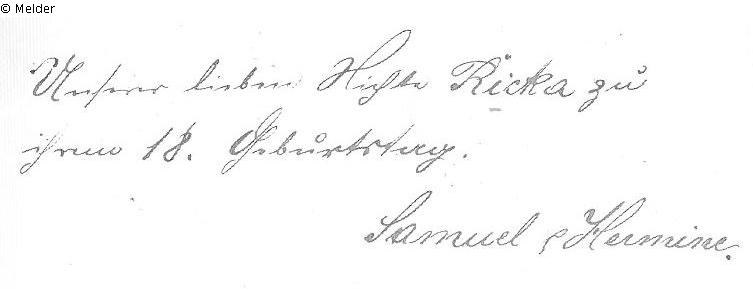 © Melder
Unserer lieben Nichte Ricka zu
ihrem 18. Geburtstag.
Samuel & Hermine.